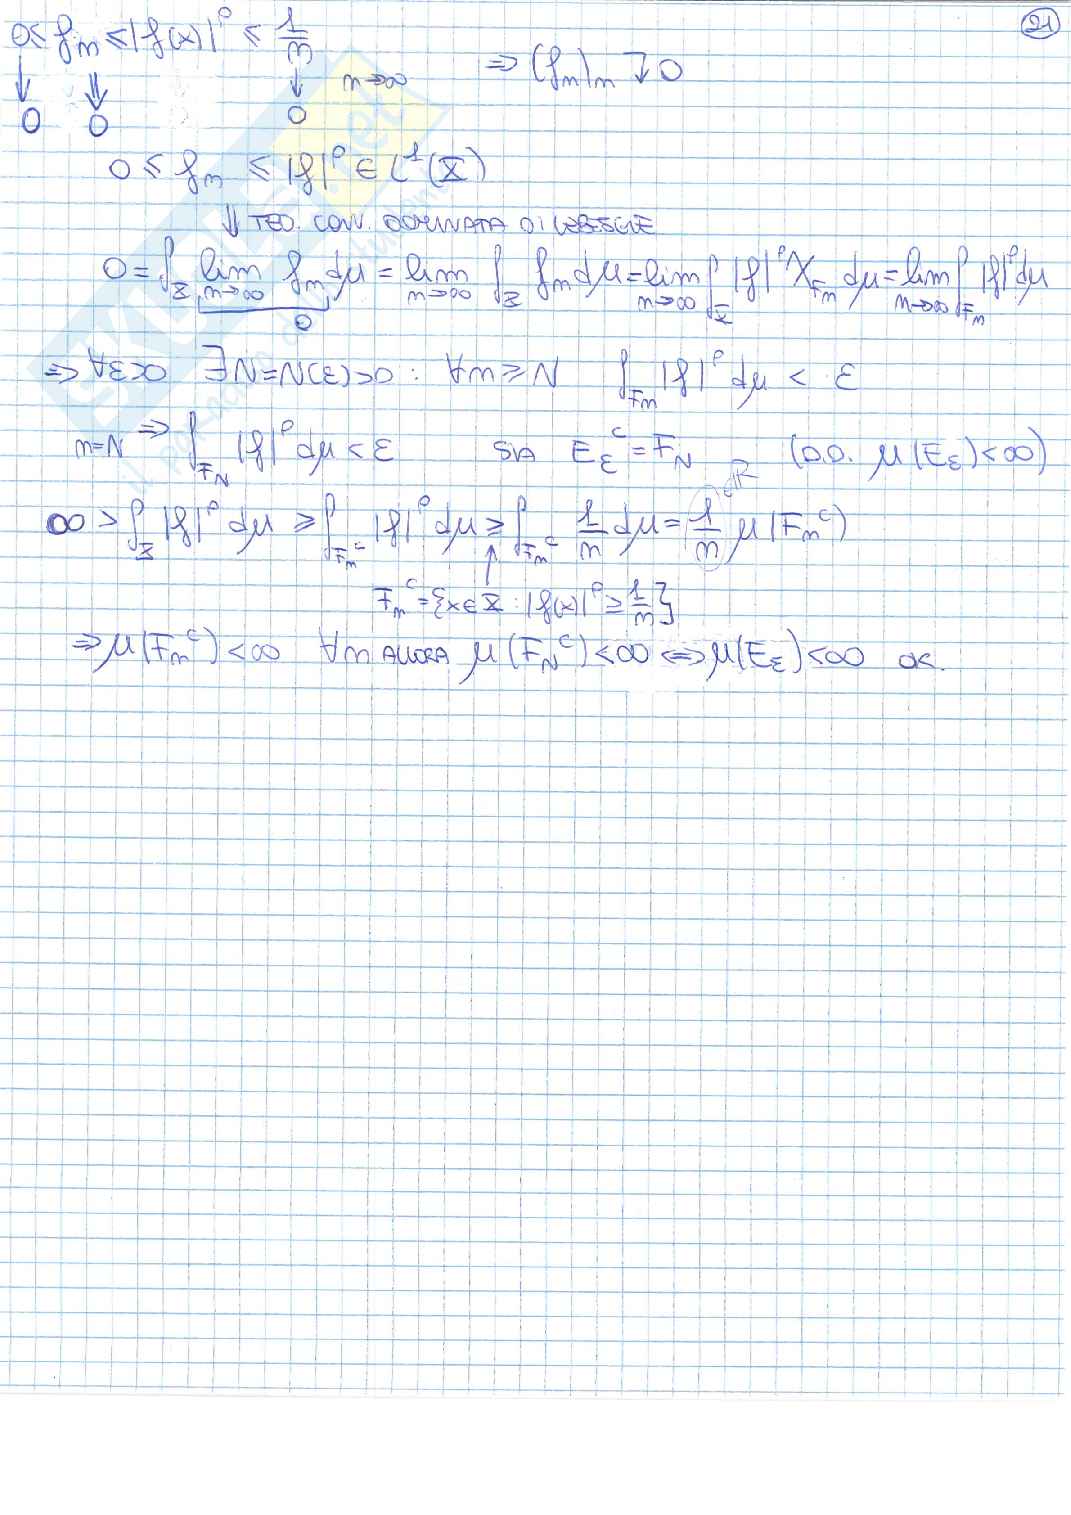 21
0 ≤ f_n ≤ |f(x)|^p ≤ 1/n
↓ ⇓ ↓ n→∞ ⇒ (f_n)_n ↓ 0
0 0 0
0 ≤ f_n ≤ |f|^p ∈ L^1(X)
⇓ TEO. CONV. DOMINATA DI LEBESGUE
0 = ∫_X lim_{n→∞} f_n dμ = lim_{n→∞} ∫_X f_n dμ = lim_{n→∞} ∫_X |f|^p χ_{F_n} dμ = lim_{n→∞} ∫_{F_n} |f|^p dμ
0
⇒ ∀ε>0 ∃N=N(ε)>0 : ∀n ≥ N ∫_{F_n} |f|^p dμ < ε
n=N ⇒ ∫_{F_N} |f|^p dμ < ε SIA E_ε^c = F_N (D.D. μ(E_ε)<∞)
∞ > ∫_X |f|^p dμ ≥ ∫_{F_n^c} |f|^p dμ ≥ ∫_{F_n^c} 1/n dμ = 1/n μ(F_n^c)
∈ℝ
↑
F_n^c = {x∈X : |f(x)|^p ≥ 1/n}
⇒ μ(F_n^c) < ∞ ∀n ALLORA μ(F_N^c) < ∞ ⇔ μ(E_ε) < ∞ OK.
SKUOLA.net